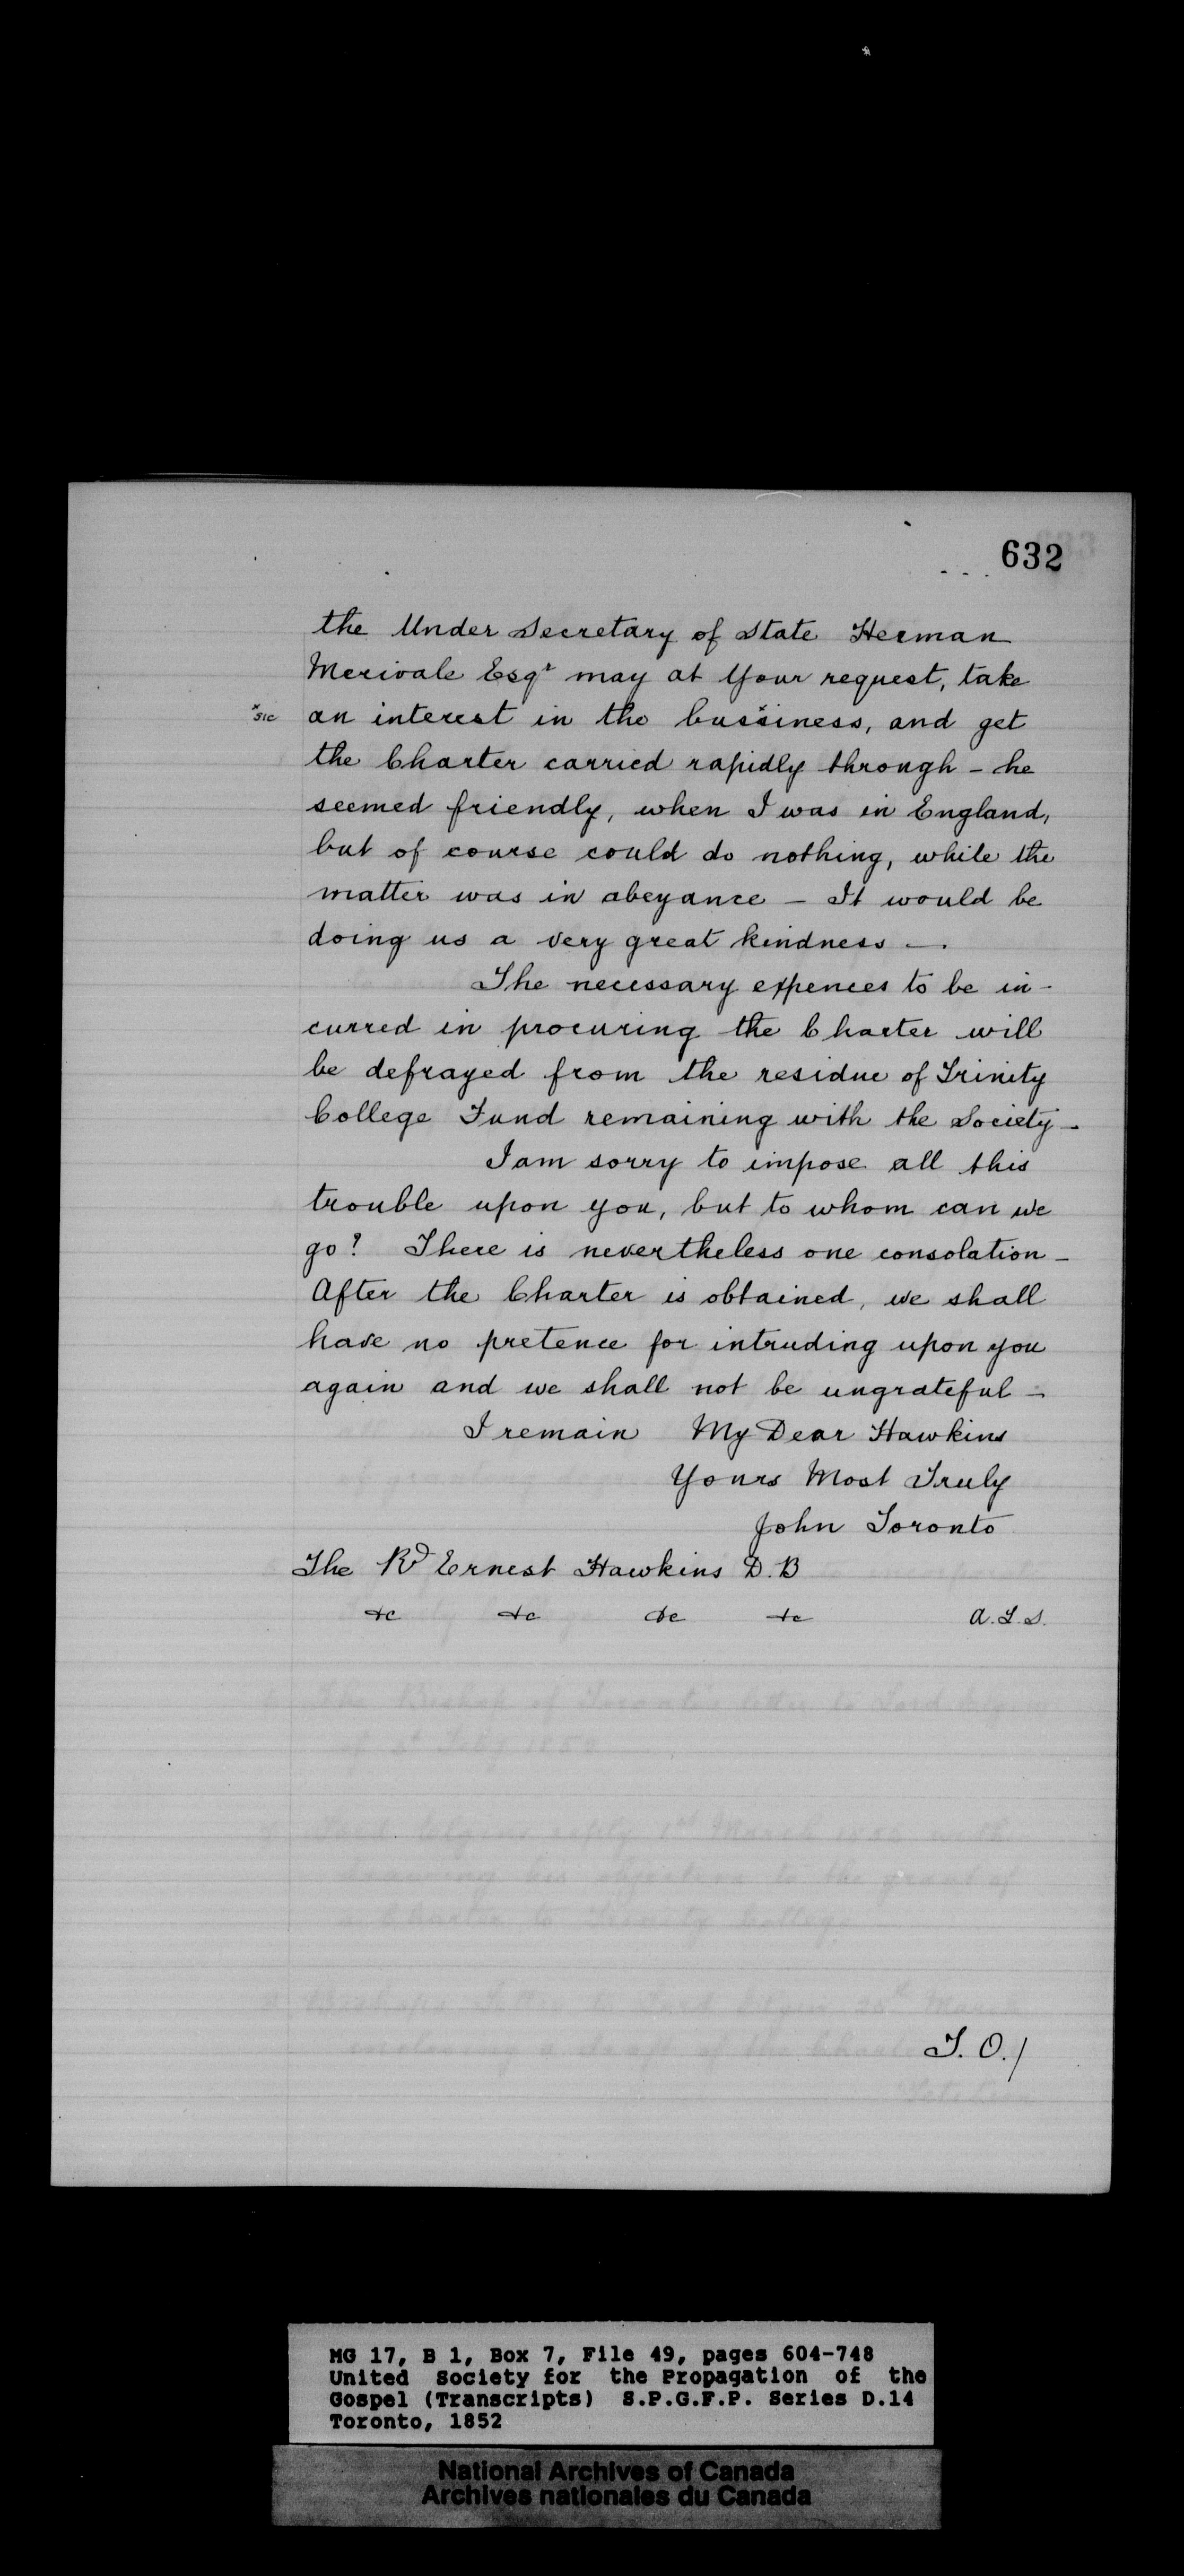 632
the Under Secretary of State Herman
Merivale Esqr may at Your request, take
x sic an interest in the bussiness, and get
the Charter carried rapidly through – he
seemed friendly, when I was in England,
but of course could do nothing, while the
matter was in abeyance – It would be
doing us a very great kindness –.
The necessary expences to be in-
curred in procuring the Charter will
be defrayed from the residue of Trinity
College Fund remaining with the Society –
I am sorry to impose all this
trouble upon you, but to whom can we
go? There is nevertheless one consolation –
After the Charter is obtained, we shall
have no pretence for intruding upon you
again and we shall not be ungrateful –
I remain My Dear Hawkins
Yours Most Truly
John Toronto
The Rd Ernest Hawkins D.B
&c &c &c &c A.L.S.
T.O./
MG 17, B 1, Box 7, File 49, pages 604-748
United Society for the Propagation of the
Gospel (Transcripts) S.P.G.F.P. Series D.14
Toronto, 1852
National Archives of Canada
Archives nationales du Canada